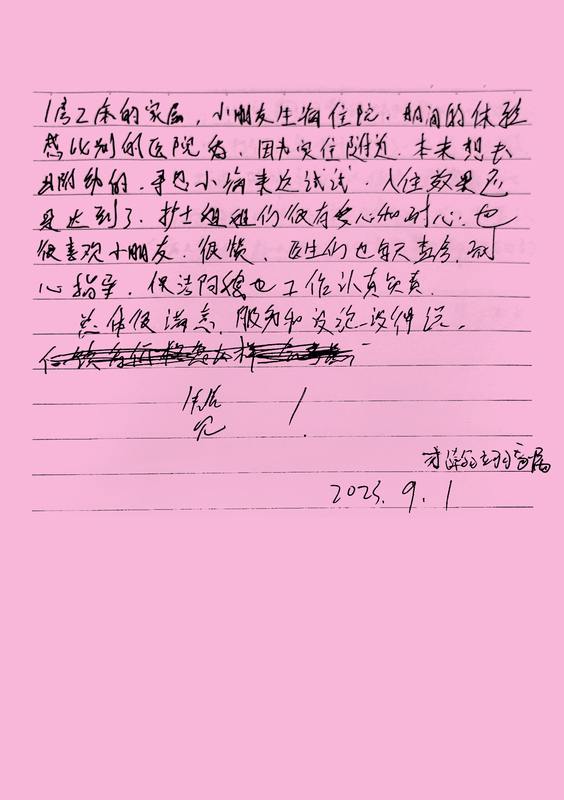 1房2床的家属，小朋友生病住院．期间的体验
感比别的医院高．因为家住附近．本来想去
的．寻思小病来这试试．入住效果
是达到了．护士姐姐们很有爱心和耐心．也
很喜欢小朋友．很赞．医生们也每天查房．耐
心指导．保洁阿姨也工作认真负责．
总体很满意．服务和没说．没得说．
2025. 9. 1